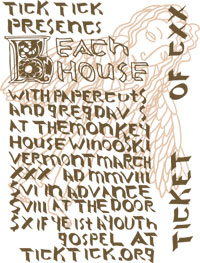 TICK TICK
PRESENTS
BEACH
HOUSE
WITH PAPERCUTS
AND GREG DAVIS
AT THE MONKEY
HOUSE WINOOSKI
VERMONT MARCH
XXX AD MMVIII
$VI IN ADVANCE
$VIII AT THE DOOR
$X IF YE IST A YOUTH
GOSPEL AT
TICKTICK.ORG
TICKET OF CXX